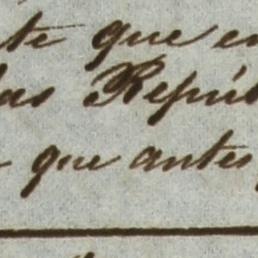 te que en
las Repúb
que antes